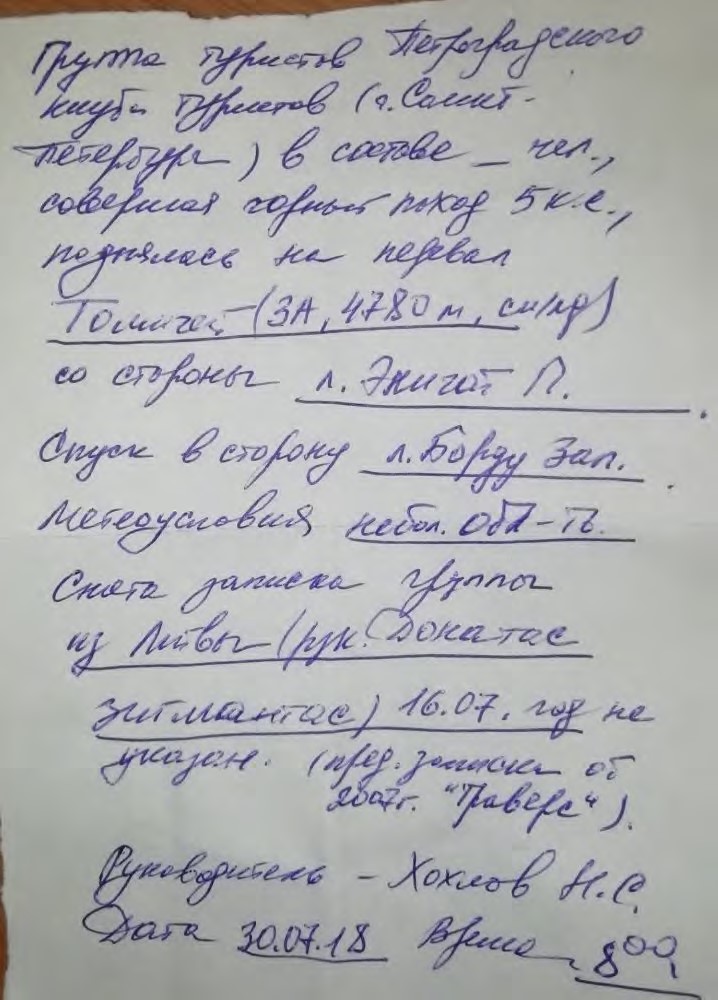 Группа туристов Петроградского
клуба туристов (г. Санкт-
Петербург) в составе _ чел.,
совершая горный поход 5 к.с.,
поднялась на перевал
Томичей (3А, 4780 м, сн/лд)
со стороны л. Энигат П.
Спуск в сторону л. Борду Зап.
Метеоусловия небол. обл-ть.
Снята записка группы
из Литвы (рук. Донатас
Зигмантас) 16.07. год не
указан. (пред. записка от
2007г. "Траверс").
Руководитель - Хохлов Н.С.
Дата 30.07.18 Время 8 00